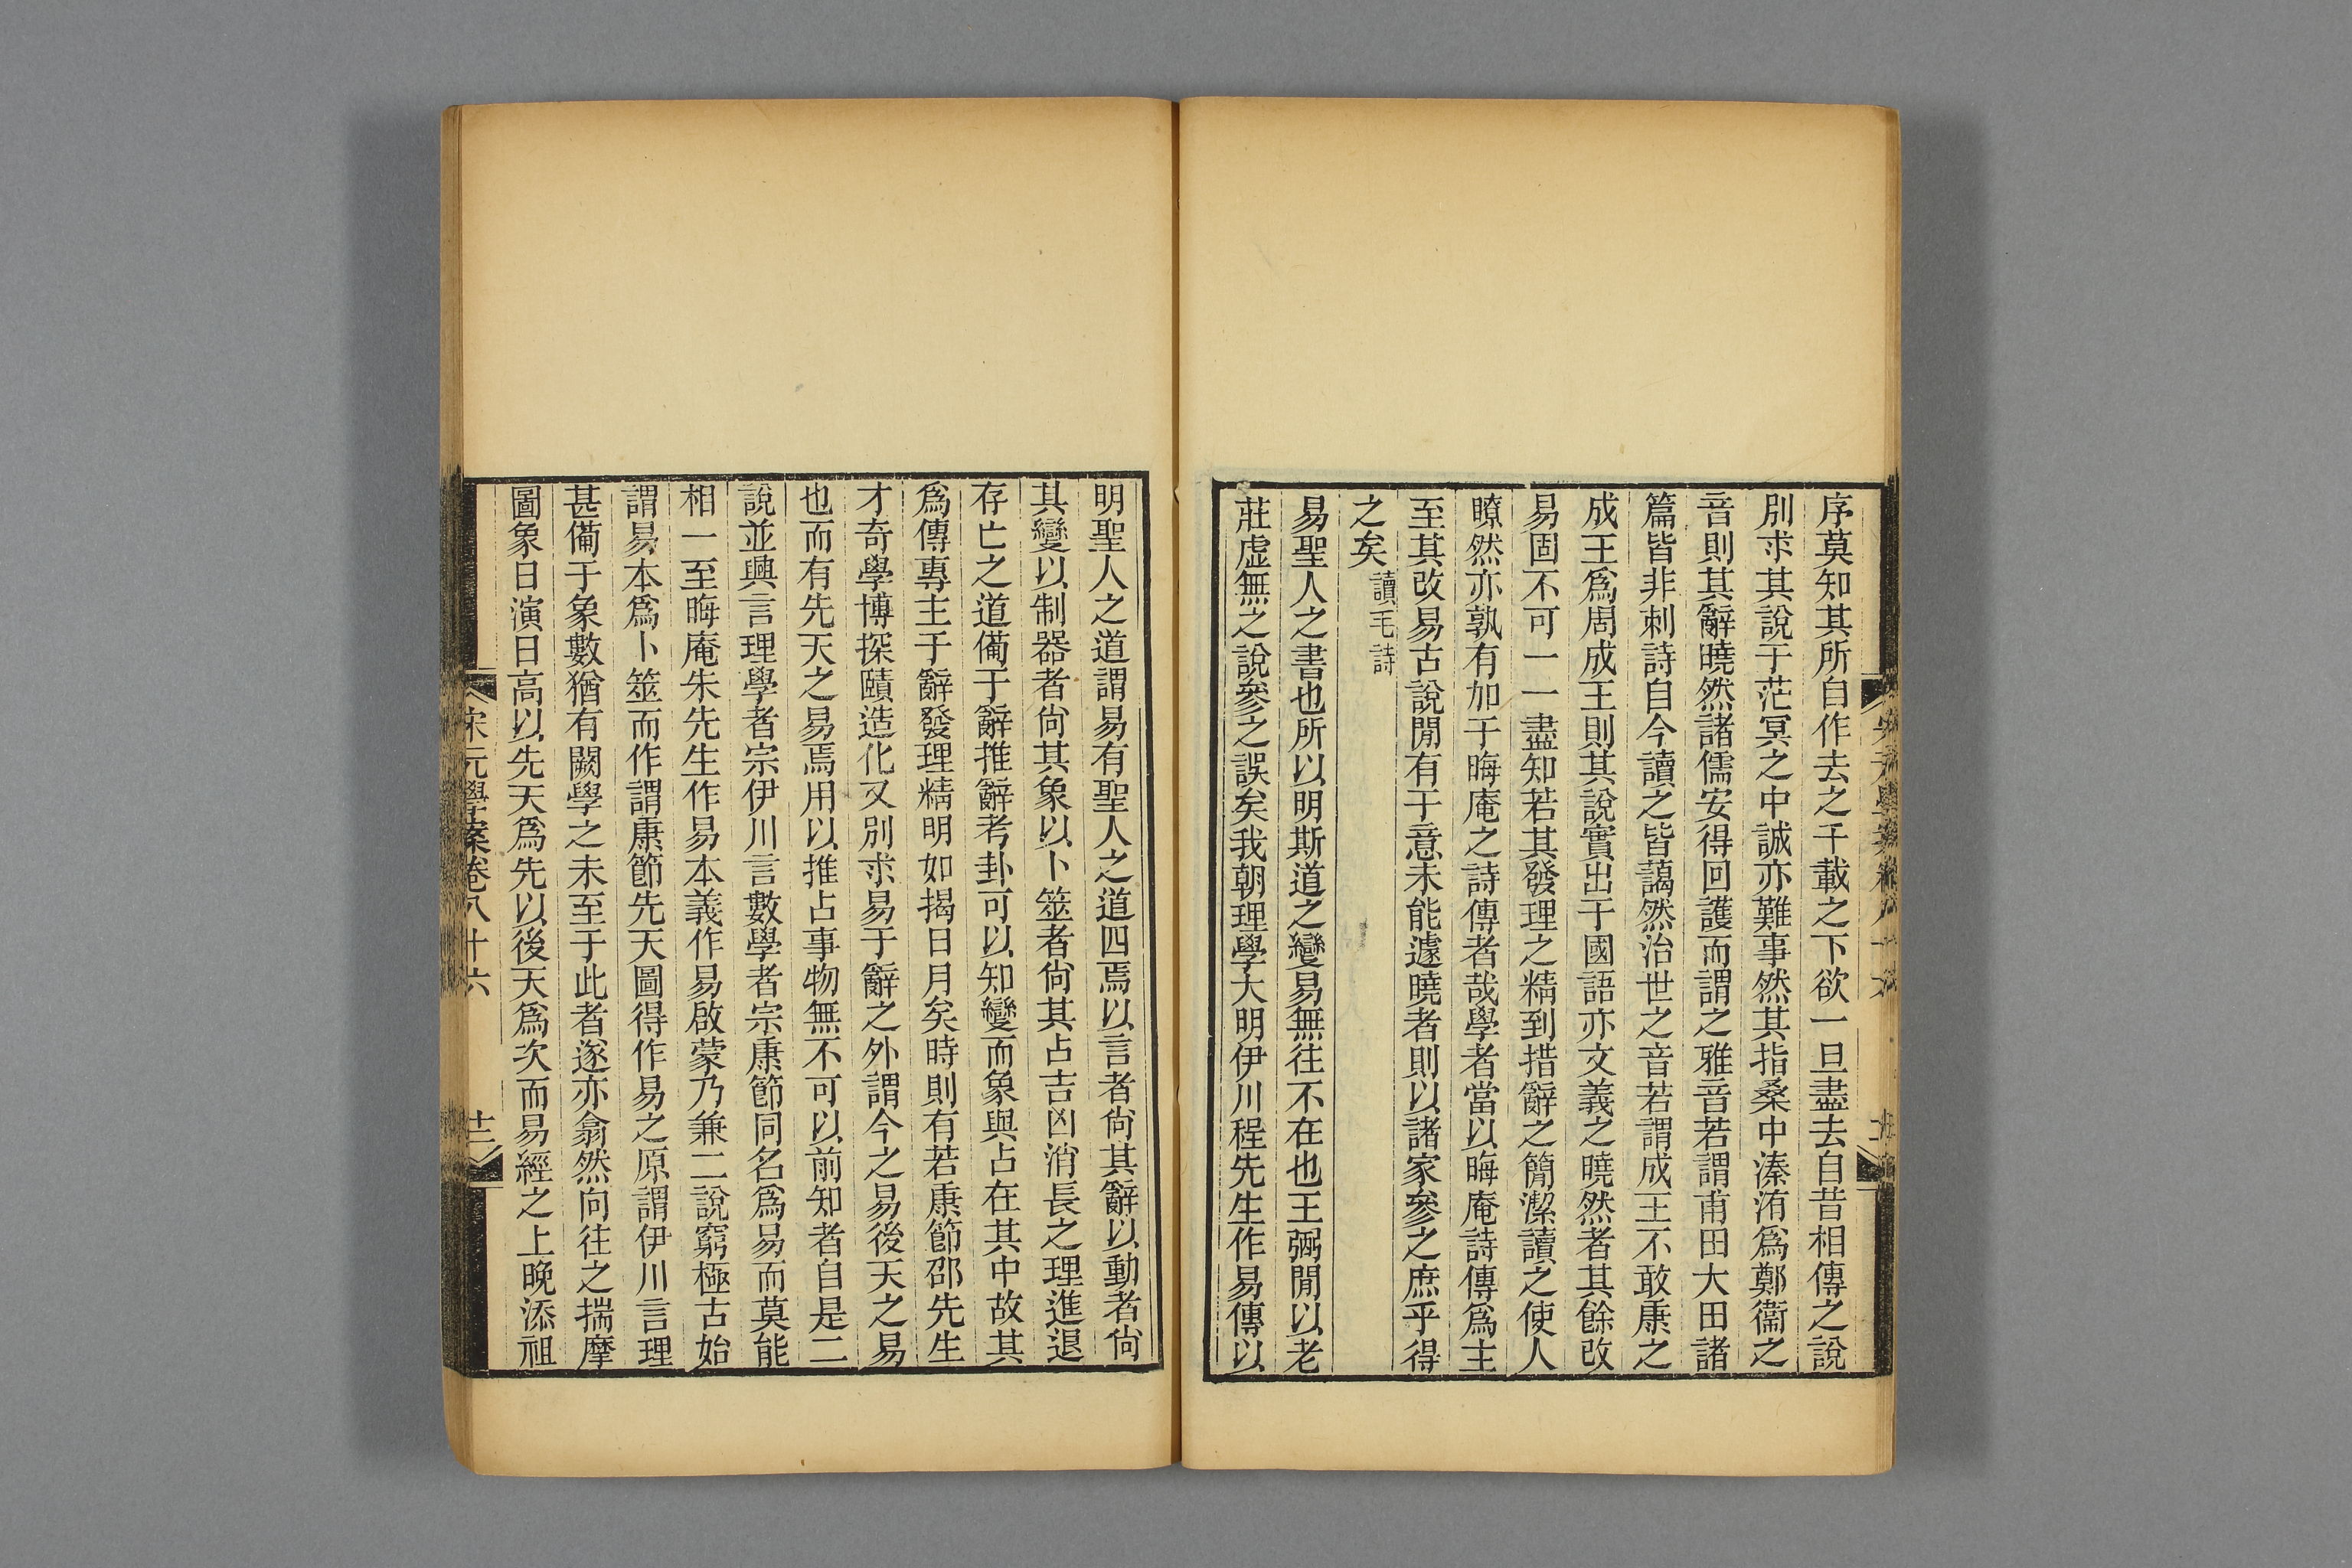 序莫知其所自作去之千載之下欲一旦盡去自昔相傳之說
別求其說于茫冥之中誠亦難事然其指桑中溱洧爲鄭衞之
音則其辭曉然諸儒安得回護而謂之雅音若謂甫田大田諸
篇皆非刺詩自今讀之皆藹然治世之音若謂成王不敢康之
成王爲周成王則其說實出于國語亦文義之曉然者其餘改
易固不可一一盡知若其發理之精到措辭之簡潔讀之使人
瞭然亦孰有加于晦庵之詩傳者哉學者當以晦庵詩傳爲主
至其改易古說閒有于意未能遽曉者則以諸家參之庶乎得
之矣讀毛詩
易聖人之書也所以明斯道之變易無往不在也王弼閒以老
莊虛無之說參之誤矣我朝理學大明伊川程先生作易傳以
明聖人之道謂易有聖人之道四焉以言者尙其辭以動者尙
其變以制器者尙其象以卜筮者尙其占吉凶消長之理進退
存亡之道備于辭推辭考卦可以知變而象與占在其中故其
爲傳專主于辭發理精明如揭日月矣時則有若康節邵先生
才奇學博探賾造化又別求易于辭之外謂今之易後天之易
也而有先天之易焉用以推占事物無不可以前知者自是二
說並興言理學者宗伊川言數學者宗康節同名爲易而莫能
相一至晦庵朱先生作易本義作易啟蒙乃兼二說窮極古始
謂易本爲卜筮而作謂康節先天圖得作易之原謂伊川言理
甚備于象數猶有闕學之未至于此者遂亦翕然向往之揣摩
圖象日演日高以先天爲先以後天爲次而易經之上晚添祖
宋元學案卷八十六